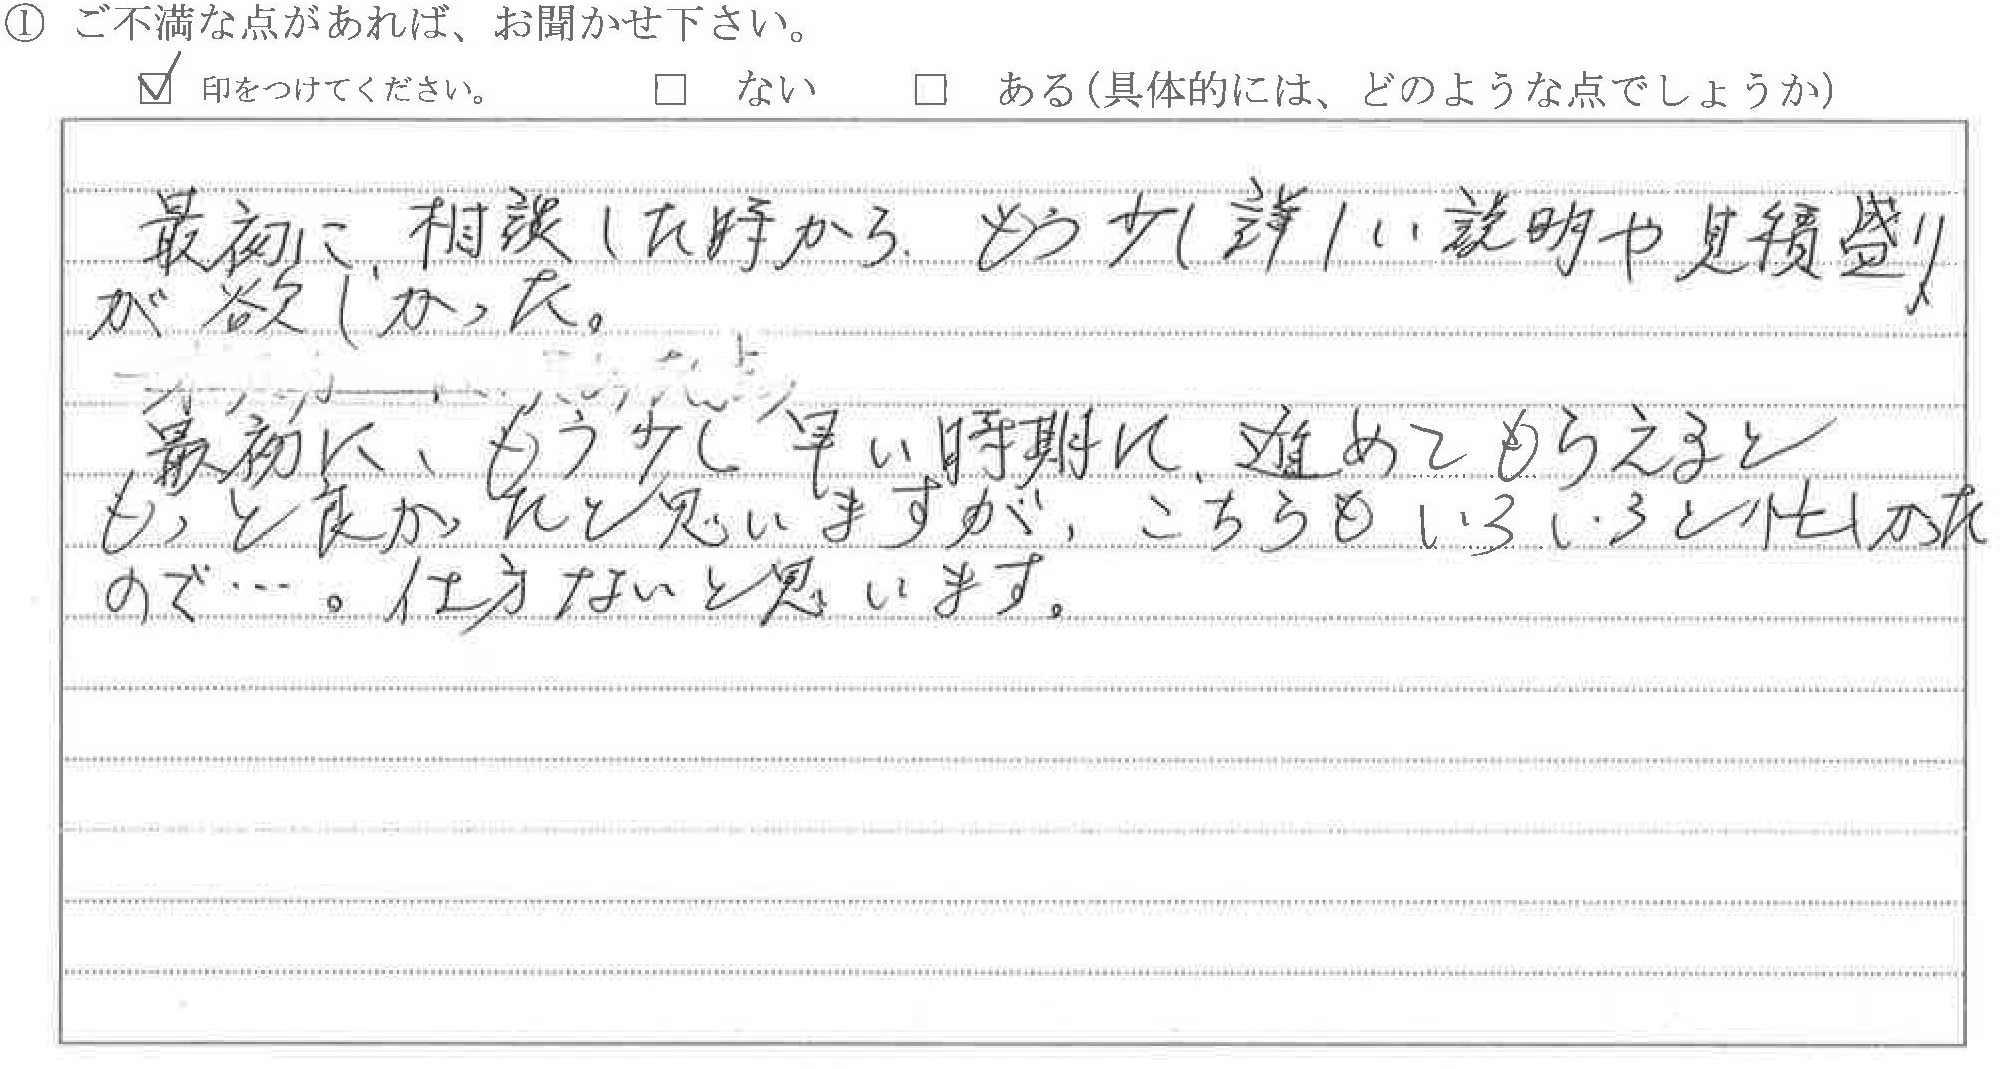 ① ご不満な点があれば、お聞かせ下さい。
☑ 印をつけてください。 □ ない □ ある(具体的には、どのような点でしょうか)
最初に、相談した時から、もう少し詳しい説明や見積盛り
が欲しかった。
最初に、もう少し早い時期に、進めてもらえると
もっと良かったと思いますが、こちらもいろいろと忙しかった
ので…。仕方ないと思います。